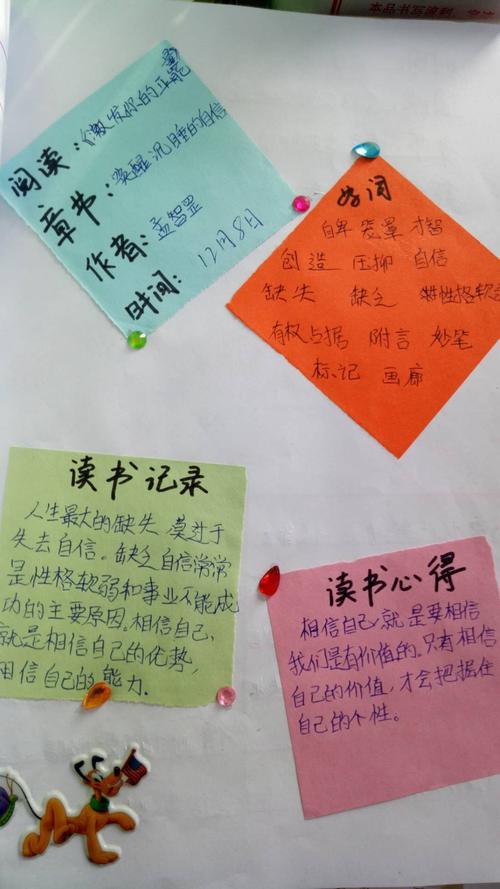 本品书写流利
阅读:《激发你的正能量
章书:唤醒沉睡的自信
作者:孟智罡
时间:12月8日
好词
自卑 笼罩 才智
创造 压抑 自信
缺失 缺乏 性格软
有权占据 附言 妙笔
标记 画廊
读书记录
人生最大的缺失 莫过于
失去自信。缺乏自信常常
是性格软弱和事业不能成
功的主要原因。相信自己,
就是相信自己的优势,
相信自己的能力.
读书心得
相信自己,就是要相信
我们是有价值的。只有相信
自己的价值,才会把握住
自己的个性。